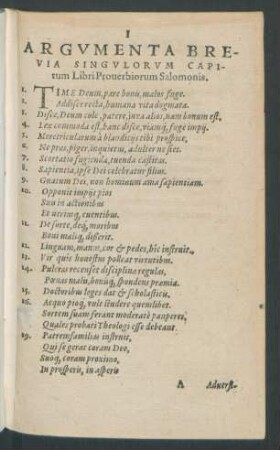 I
ARGVMENTA BRE-
VIA SINGVLORVM CAPI-
tum Libri Prouerbiorum Salomonis.
1. TIME Deum, pare bonis, malos fuge.
2. Addisce recta, humana vita dogmata.
3. Disce, Deum cole, patere, iuva alios, nam bonum est,
4. Lex commoda est, hanc disce, viamq; fuge impij.
5. Meretricularum à blanditijs tibi prospice,
6. Ne præs, piger, inquietus, adulter ne siet.
7. Scortatio fugienda, tuenda castitas.
8. Sapientia, ipse Dei celebratur filius.
9. Gnatum Dei, non hominum ama sapientiam.
10. Opponit impijs pios
Suis in actionibus
Et vtriusq; euentibus.
11. De sorte, deq; moribus
Boni maliq; disserit.
12. Linguam, manus, cor & pedes, hîc instruit.
13. Vir quis honestus polleat virtutibus.
14. Pulcras recenset disciplinæ regulas.
15. Pœnas malis, bonisq; spondens præmia.
Doctoribus leges dat & scholasticis.
16. Aequo pioq; vult studere quemlibet.
Sortem suam ferant moderatè pauperes,
Quales probati Theologi esse debeant
19. Patremfamilias instruit,
Qui se gerat coram Deo,
Suoq; coram proximo,
In prosperis, in asperis
A Aduerst-